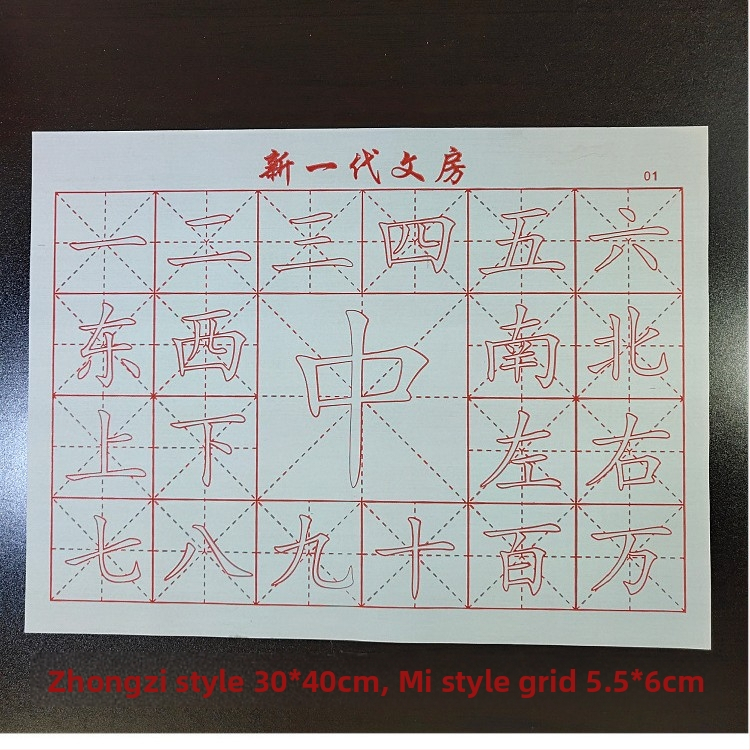 新一代文房
01
一二三四五六
东西中南北
上下左右
七八九十百万
Zhongzi style 30*40cm, Mi style grid 5.5*6cm